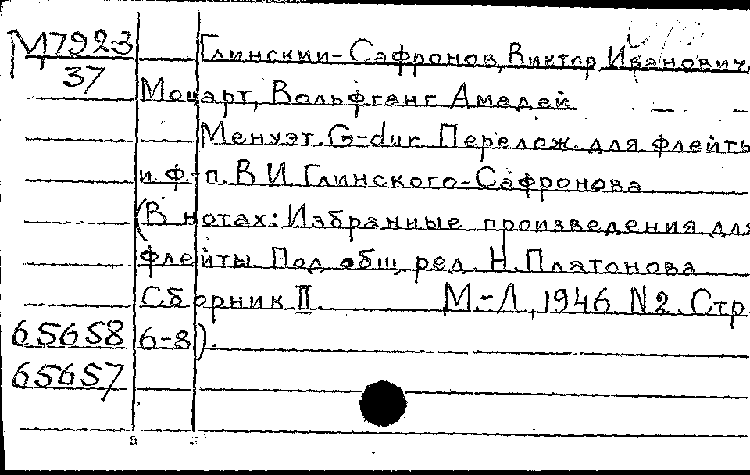 М7923 Глинский-Сафронов, Виктор Иванович.
37
Моцарт, Вольфганг Амадей
Менуэт. G-dur. Перелож. для флейты
и ф-п. В И. Глинского-Сафронова
(В нотах: Избранные произведения для
флейты. Под общ. ред. Н. Платонова
Сборник II. М.-Л., 1946 N2. Стр.
65658 6-8).
65657